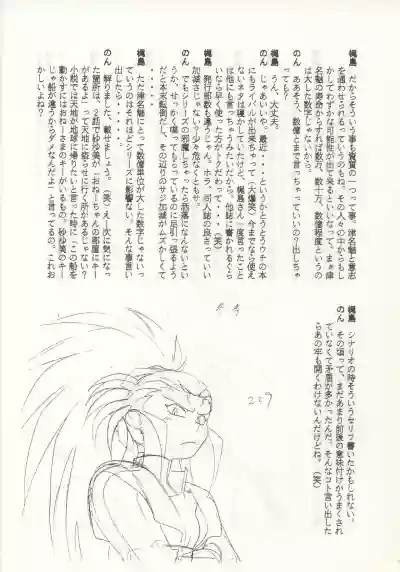 梶島　だからそういう事も資質の一つって事。津名魅と意志
を通わせられるっていうのもね。その人々の中からもし
かしてわずかな可能性が出て来るといいなって。まぁ津
名魅の寿命からすれば数万、数十万、数億程度というの
は大した数字じゃないから。
のん　ああそう、数億とまで言っちゃっていいの？出しちゃ
っても？
梶島　うん、大丈夫。
のん　じゃあいいや。最近・・・というかとうとうウチの本
にもライバルが出来ちゃってさ（爆笑）今までなら使え
ないネタは寝かしてたけど、梶島さん一度言ったこと
は他にも言っちゃうみたいだから。他誌に書かれるぐら
いなら早く使った方がトクだわって・・・（笑）
梶島　発行部数も違うじゃん。ホラ、同人誌の良さっていい
加減さじゃない？少々危なくともサ。
のん　でもシリーズの邪魔しちゃったら洒落になんないとい
うか、せっかく喋ってもらっているのに足引っ張るよう
だと本末転倒だし、その辺りのサジ加減がムズかしくて
・・・・。
梶島　ただ津名魅にとって数億単位が大した数字じゃないっ
ていうのはそれほどシリーズに影響ない。そんな事言い
出したら・・・・・。
のん　解りました、載せましょう。（笑）え－次に気になっ
た箇所は、２話で砂沙美が「おねーちゃんの部屋にキー
があるよ」って天地に取らせに行く所があるじゃない？
小説では天地が地球に帰りたいと言った時に「この船を
動かすにはおねーさまのキーがいるもの。砂沙美のキー
じゃ船が違うからダメなんだよ」と言ってるの。これお
かしいよね？
梶島　シナリオの時そういうセリフ書いたかもしれない。
のん　その頃って、まだあまり前後の意味付けがうまくされ
ていなくて矛盾が多かったんだ。そんなコト言い出した
らあの牢も開くわけないんだけどね。（笑）